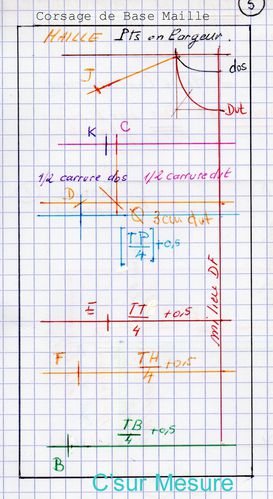 5
Corsage de Base Maille
MAILLE Pts en Largeur.
J
dos
Dvt
K C
1/2 carrure dos 1/2 carrure dvt
D
Q 3cm dvt
[TP/4]+0,5
milieu DF
E TT/4 +0,5
F TH/4 +0,5
TB/4 +0,5
B
C'sur Mesure